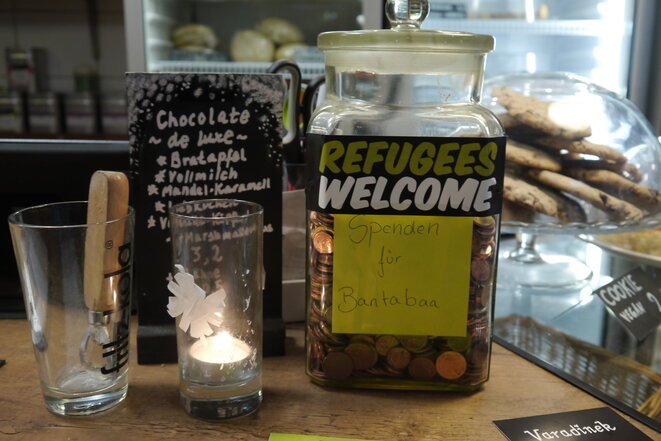 Chocolate
~ de luxe ~
* Bratapfel
* Vollmilch
* Mandel-Karamell
3,2
REFUGEES
WELCOME
Spenden
für
Bantabaa
fritz-kola
COOKIE
VEGAN 2
Varadinek